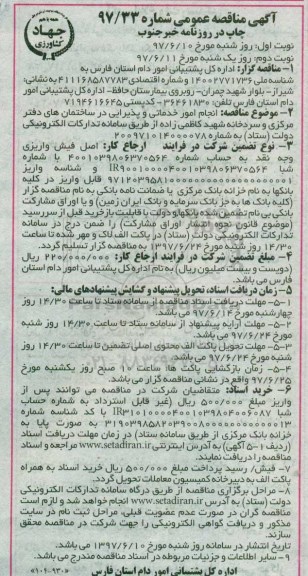 آگهی مناقصه عمومی شماره ۹۷/۳۳
چاپ در روزنامه خبرجنوب
جهاد
کشاورزی
نوبت اول: روز شنبه مورخ ۹۷/۶/۱۰
نوبت دوم: روز یک شنبه مورخ ۹۷/۶/۱۱
۱- مناقصه گزار: اداره کل پشتیبانی امور دام استان فارس به
شناسه ملی ۱۴۰۰۲۷۷۱۷۳۶ و شماره اقتصادی ۴۱۱۱۶۸۵۸۷۷۸۳ به نشانی:
شیراز- بلوار شهید چمران- روبروی بیمارستان حافظ- اداره کل پشتیبانی امور
دام استان فارس تلفن: ۳۶۴۶۱۸۳۰ - کدپستی ۷۱۹۴۶۱۶۶۴۵
۲- موضوع مناقصه: انجام امور خدماتی و پذیرایی در ساختمان های دفتر
مرکزی و سردخانه شهید کاظمی زاده از طریق سامانه تدارکات الکترونیکی
دولت (ستاد) به شماره ۲۰۰۹۷۱۰۱۴۰۰۰۰۰۷۸
۳- نوع تضمین شرکت در فرایند ارجاع کار: اصل فیش واریزی
وجه نقد به حساب شماره ۴۰۰۱۰۳۹۸۰۶۳۷۰۵۶۴ با شماره
شبا و شناسه واریز
قابل واریز در کلیه
بانکها به نام خزانه بانک مرکزی یا ضمانت نامه بانکی به نام مناقصه گزار
(کلیه بانک ها به جز بانک سرمایه و بانک ایران زمین) و یا اوراق مشارکت
بانکی بی نام تضمین شده بانکها و دولت با قابلیت بازخرید قبل از سررسید
(موضوع قانون نحوه انتشار اوراق مشارکت) را ضمن درج در سامانه
تدارکات الکترونیکی دولت (ستاد) در پاکت الف لاک و مهر شده تا ساعت
۱۴/۳۰ روز شنبه مورخ ۹۷/۶/۲۴ به مناقصه گزار تسلیم گردد.
۴- مبلغ تضمین شرکت در فرایند ارجاع کار: ۲۲۰/۰۰۰/۰۰۰ ریال
(دویست و بیست میلیون ریال) به نام اداره کل پشتیبانی امور دام استان
فارس می باشد.
۵- زمان دریافت اسناد، تحویل پیشنهاد و گشایش پیشنهادهای مالی:
۵-۱- مهلت دریافت اسناد مناقصه از سامانه ستاد تا ساعت ۱۴/۳۰ روز
چهارشنبه مورخ ۹۷/۶/۱۴ می باشد.
۵-۲- مهلت ارایه پیشنهاد از سامانه ستاد تا ساعت ۱۴/۳۰ روز شنبه
مورخ ۹۷/۶/۲۴ می باشد.
۵-۳- مهلت تحویل پاکت الف محتوی اصل تضمین تا ساعت ۱۴/۳۰ روز
شنبه مورخ ۹۷/۶/۲۴ می باشد.
۵-۴- زمان بازگشایی پاکت ها: ساعت ۱۰ صبح روز یکشنبه مورخ
۹۷/۶/۲۵ واقع در نشانی مناقصه گزار می باشد.
۶- خرید اسناد: متقاضیان شرکت در مناقصه می توانند پس از
واریز مبلغ ۵۰۰/۰۰۰ ریال (غیر قابل استرداد به شماره حساب
شبا با کد شناسه شماره
به صورت پایا به
خزانه بانک مرکزی از طریق سامانه ستاد) در زمان مهلت دریافت اسناد
(ردیف ۵-۱ آگهی) به آدرس اینترنتی www.setadiran.ir مراجعه و اسناد
مناقصه را دریافت نمایند.
۷- فیش/ رسید پرداخت مبلغ ۵۰۰/۰۰۰ ریال خرید اسناد به همراه
پاکت الف به دبیرخانه کمیسیون معاملات تحویل گردد.
۸- مراحل برگزاری مناقصه از طریق درگاه سامانه تدارکات الکترونیکی
دولت (ستاد) به آدرس www.setadiran.ir انجام خواهد شد و لازم است
مناقصه گران در صورت عدم عضویت قبلی، مراحل ثبت نام در سایت
مذکور و دریافت گواهی الکترونیکی را جهت شرکت در مناقصه محقق
سازند.
تاریخ انتشار در سامانه روز شنبه مورخ ۱۳۹۷/۶/۱۰ می باشد.
۹- سایر اطلاعات و جزییات مربوطه در اسناد مناقصه مندرج می باشد.
اداره کل پشتیبانی امور دام استان فارس